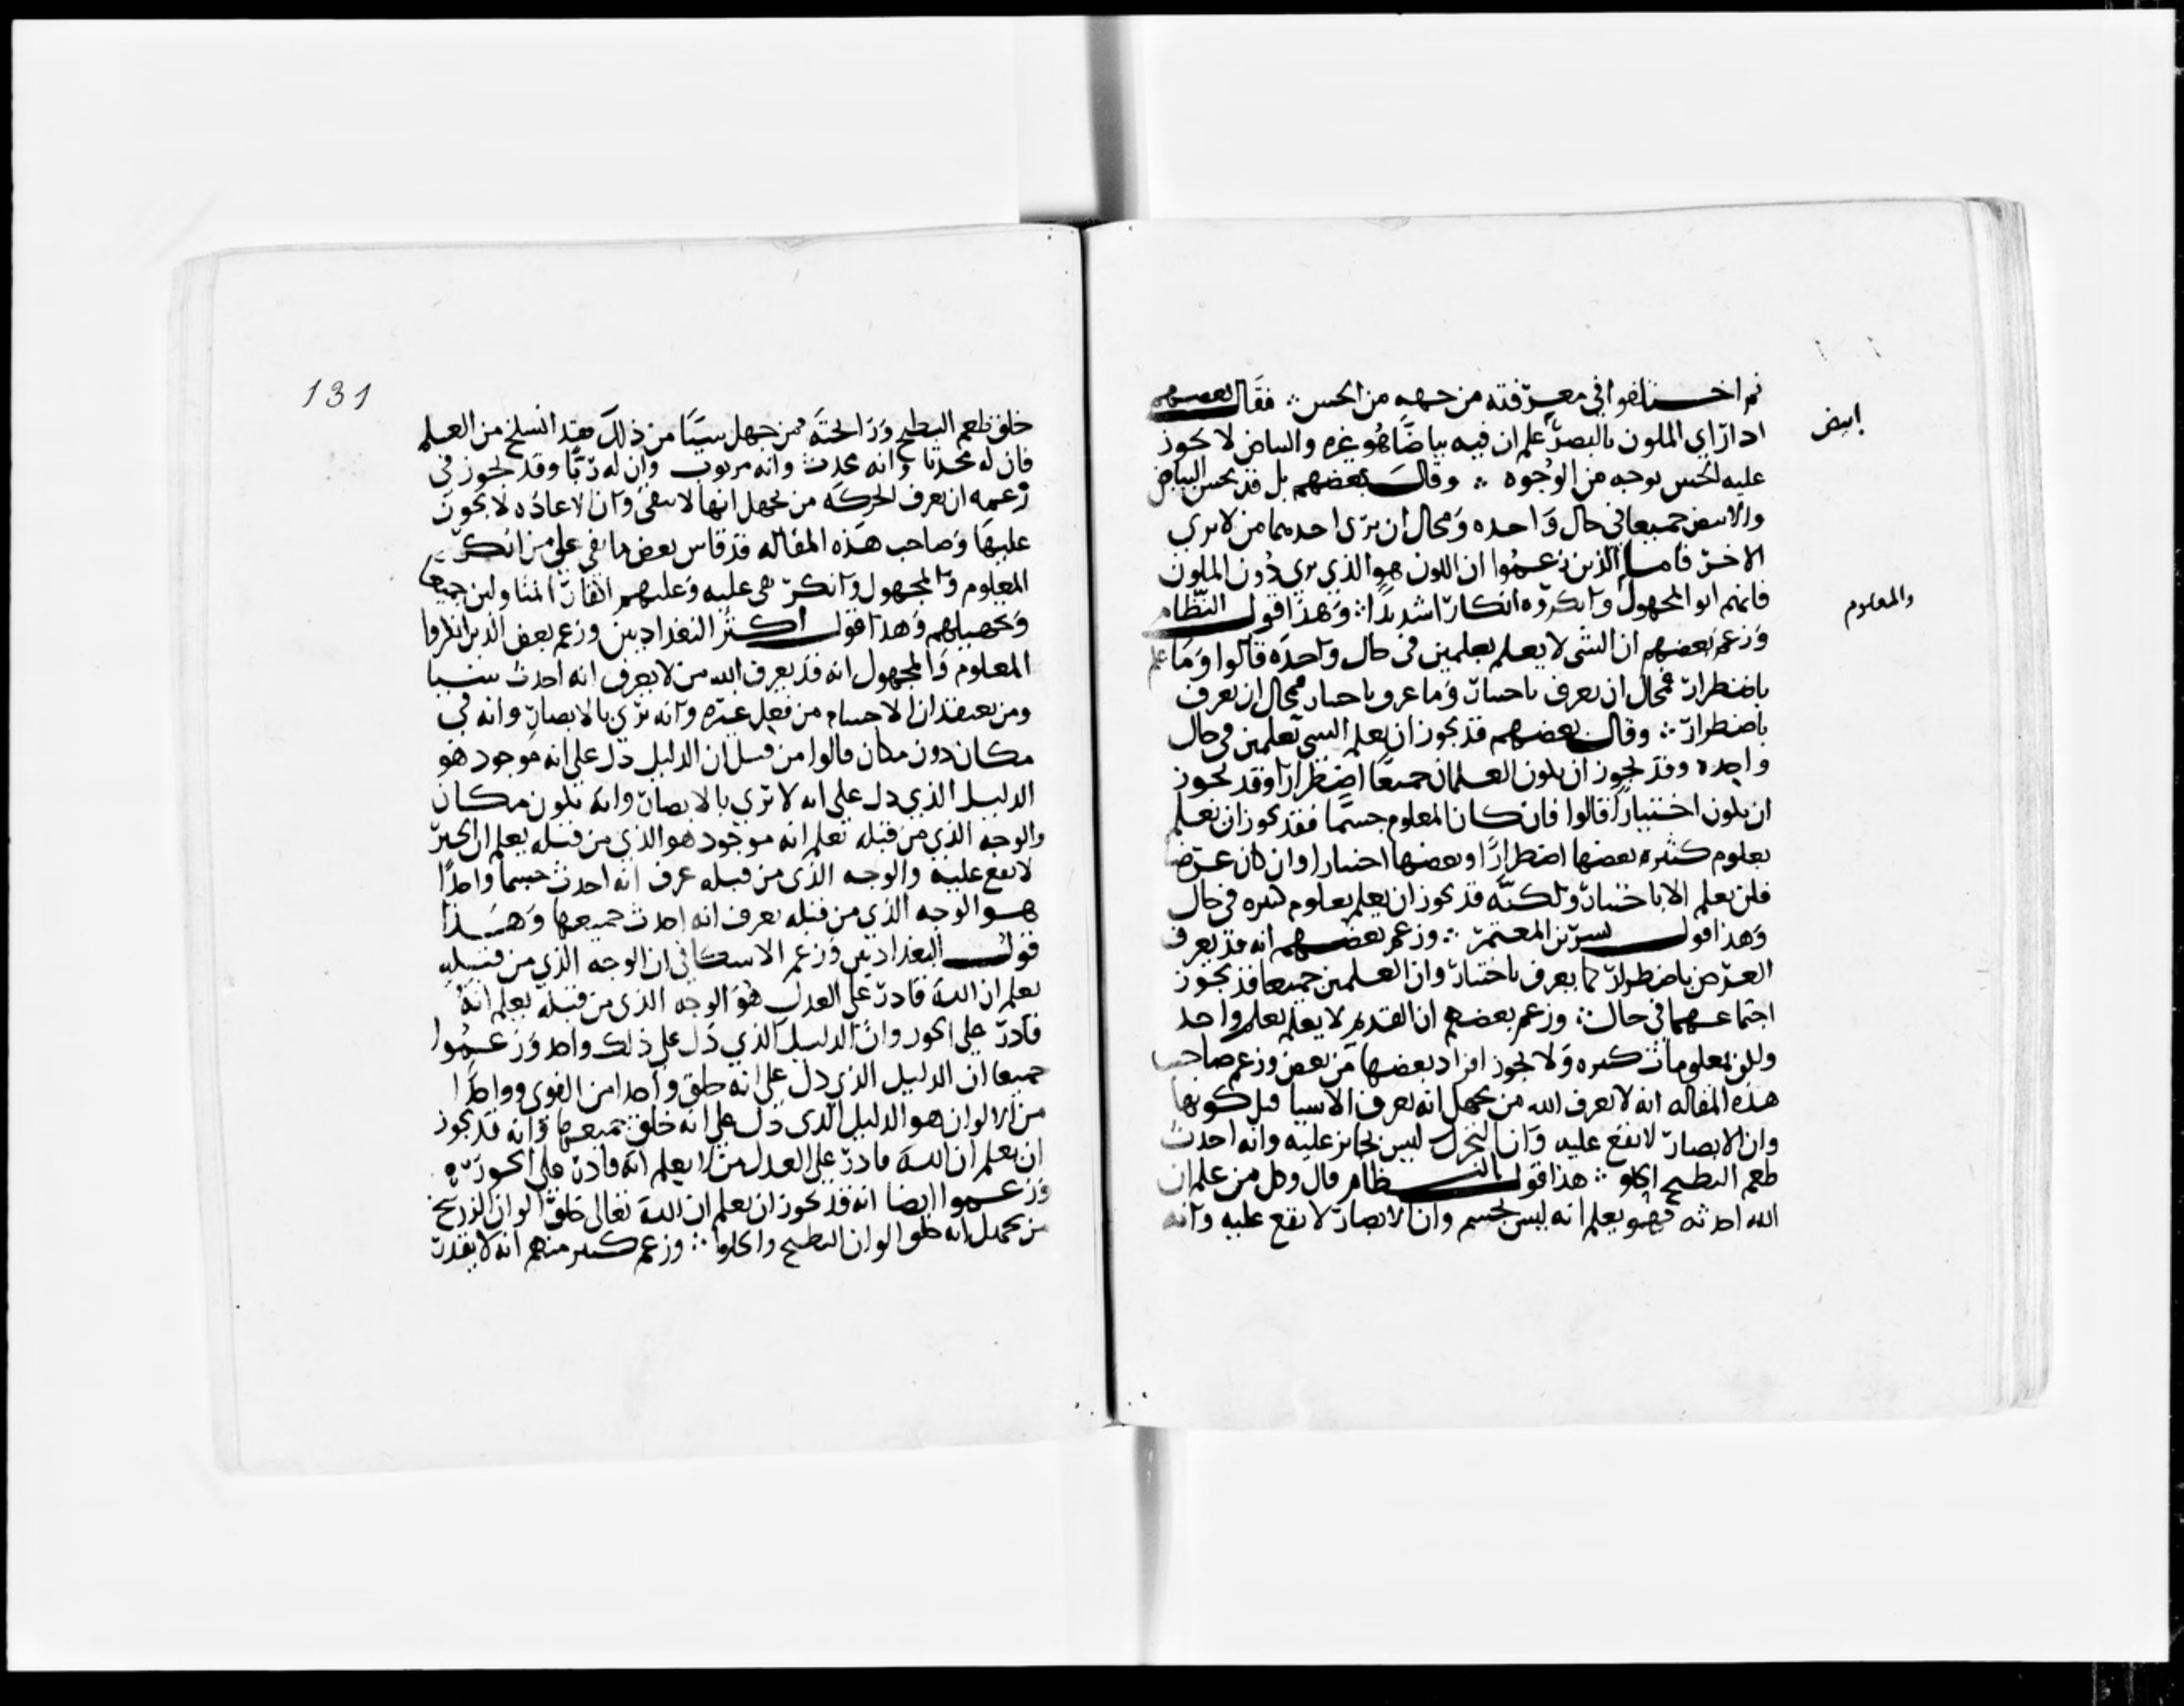 ثم اختلفوا في معرفته من جهه من الحس ∴ فقال بعضهم
اذا راي الملون بالبصر علم ان فيه بياضا هو غيره والبياض لا يجوز
عليه الحس بوجه من الوجوه ∴ وقال بعضهم بل قد يحس البياض
والابيض جميعا في حال واحده ومحال ان يرى احدهما من لا يرى
الاخر فاما الذين زعموا ان اللون هو الذي يرى دون الملون
فانهم ابوا المجهول وانكروه انكارا شديدا ∴ وهذا قول النظام
وزعم بعضهم ان الشى لا يعلم بعلمين في حال واحده قالوا وما علم
باضطرار فمحال ان يعرف باختيار وما عرف باختيار فمحال ان يعرف
باضطرار ∴ وقال بعضهم قد يجوز ان يعلم الشي بعلمين في حال
واحده وقد يجوز ان يكون العلمان جميعا اضطرارا وقد يجوز
ان يكون اختيارا قالوا فان كان المعلوم جسما فقد يجوز ان يعلم
بعلوم كثيره بعضها اضطرارا وبعضها اختيارا وان كان عرضا
فلن يعلم الا باختيار ولكنه قد يجوز ان يعلم بعلوم كثيره في حال
وهذا قول بشر بن المعتمر ∴ وزعم بعضهم انه قد يعرف
العرض باضطرار كما يعرف باختيار وان العلمين جميعا قد يجوز
اجتماعهما في حال ∴ وزعم بعضهم ان القديم لا يعلم بعلم واحد
ولكن بمعلومات كثيره ولا يجوز افراد بعضها من بعض وزعم صاحب
هذه المقاله انه لا يعرف الله من يجهل انه يعرف الاشيا قبل كونها
وان الابصار لا تقع عليه وان التحرك ليس بجائز عليه وانه احدث
طعم البطيح الحلو ∴ هذا قول النظام قال وكل من علم ان
الله احدثه فهو يعلم انه ليس بجسم وان الابصار لا تقع عليه وانه
ابيض
والمعلوم
131
خلق طعم البطيح ورايحته فمن جهل شيا من ذلك فقد انسلخ من العلم
فان له محدثا وانه محدث وانه مربوب وان له ربا وقد يجوز في
زعمه ان يعرف الحركه من يجهل انها لا تبقى وان الاعاده لا تجوز
عليها وصاحب هذه المقاله قد قاس بعض ما بقي على من انكر
المعلوم والمجهول وانكر
وتجهيلهم وهذا قول اكثر البغداديين وزعم بعض الذين انكروا
المعلوم والمجهول انه قد يعرف الله من لا يعرف انه احدث شيا
ومن يعتقد ان الاجسام من فعل غيره وانه يرى بالابصار وانه في
مكان دون مكان قالوا من قبل ان الدليل دل على انه موجود هو
الدليل الذي دل على انه لا يرى بالابصار وانه بكون مكان
والوجه الذي من قبله تعلم انه موجود هو الذي من قبله يعلم ان الحيز
لا يقع عليه والوجه الذي من قبله عرف انه احدث جسما واحدا
هو الوجه الذي من قبله يعرف انه احدث جميعها وهذا
قول البغداديين وزعم الاسكافي ان الوجه الذي من قبله
يعلم ان الله قادر على العدل هو الوجه الذي من قبله يعلم انه
قادر على الجور وان الدليل الذي دل على ذلك واحد وزعموا
جميعا ان الدليل الذي دل على انه خلق واحدا من القوى وواحدا
من الالوان هو الدليل الذي دل على انه خلق جميعها وانه قد يجوز
ان يعلم ان الله قادر على العدل من لا يعلم انه قادر على الجور
وزعموا ايضا انه قد يجوز ان يعلم ان الله تعالى خلق الوان الزرنيخ
من يجهل انه خلق الوان البطيح والحلوا ∴ وزعم كثير منهم انه لا يقدر